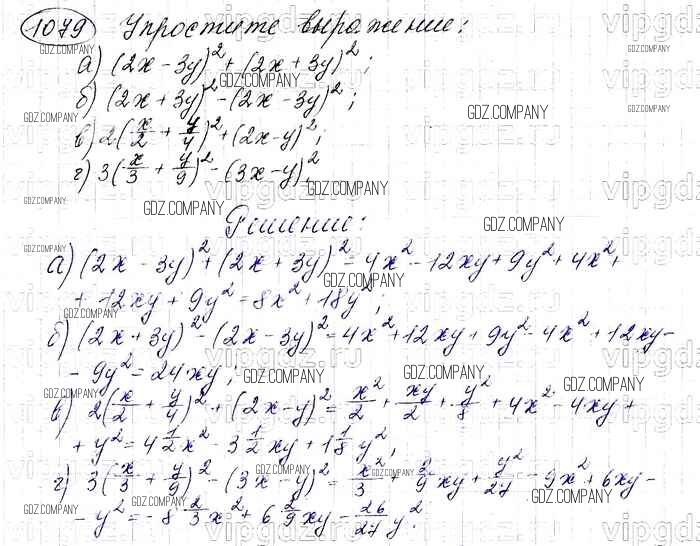 1079 Упростите выражение:
а) (2x - 3y)² + (2x + 3y)²;
б) (2x + 3y)² - (2x - 3y)²;
в) 2(x/2 + y/4)² + (2x - y)²;
г) 3(x/3 + y/9)² - (3x - y)².
Решение:
а) (2x - 3y)² + (2x + 3y)² = 4x² - 12xy + 9y² + 4x² +
+ 12xy + 9y² = 8x² + 18y²;
б) (2x + 3y)² - (2x - 3y)² = 4x² + 12xy + 9y² - 4x² + 12xy -
- 9y² = 24xy;
в) 2(x/2 + y/4)² + (2x - y)² = x²/2 + xy/2 + y²/8 + 4x² - 4xy +
+ y² = 4 1/2 x² - 3 1/2 xy + 1 1/8 y²;
г) 3(x/3 + y/9)² - (3x - y)² = x²/3 + 2/9 xy + y²/27 - 9x² + 6xy -
- y² = - 8 2/3 x² + 6 2/9 xy - 26/27 y².
GDZ.COMPANY
vipgdz.ru